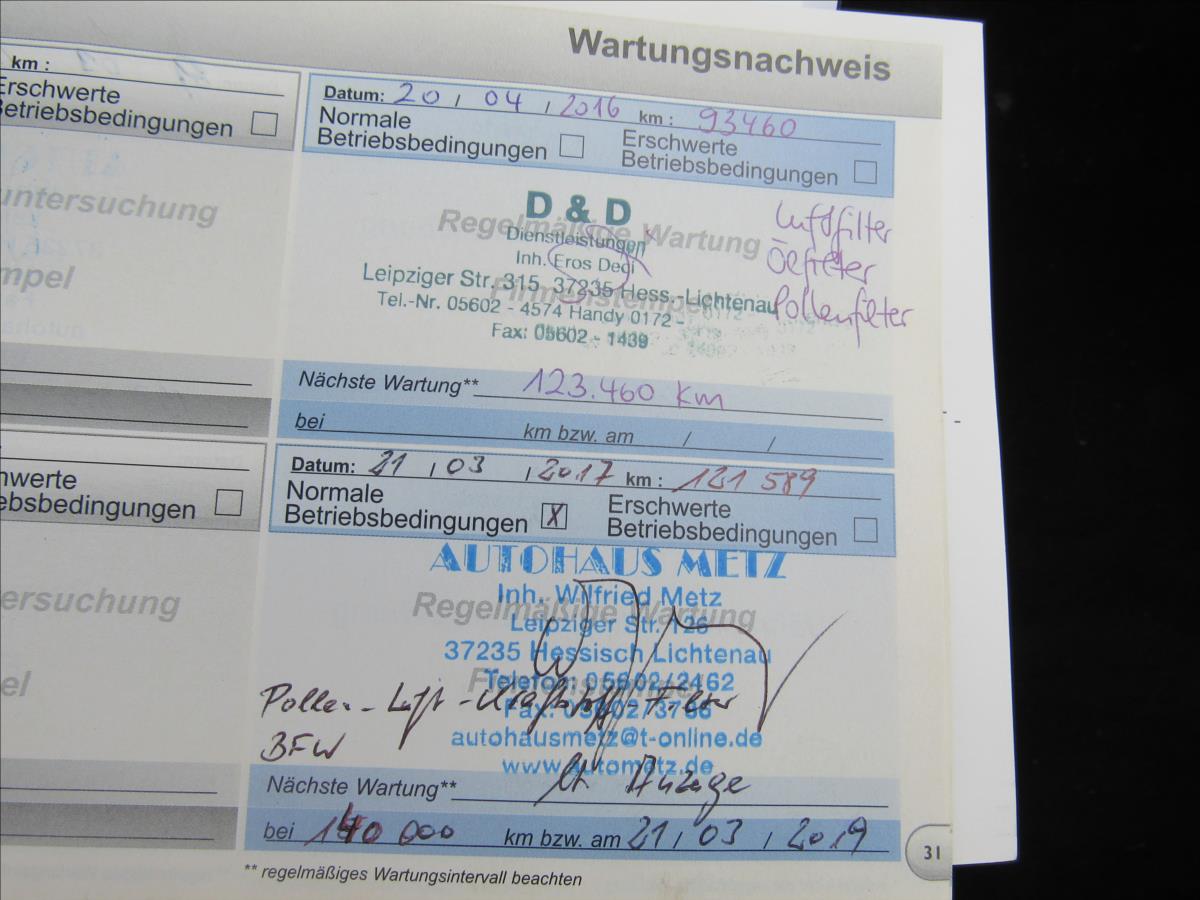 Wartungsnachweis
km :
Erschwerte
Betriebsbedingungen
untersuchung
mpel
Datum: 20 / 04 / 2016 km : 93460
Normale
Betriebsbedingungen
Erschwerte
Betriebsbedingungen
D & D
Regelmäßige Wartung
Dienstleistungen
Inh. Eros Dedi
Leipziger Str. 315, 37235 Hess.-Lichtenau
Firmenstempel
Tel.-Nr. 05602 - 4574 Handy 0172 -
Fax: 05602 - 1439
Luftfilter
Ölfilter
Pollenfilter
Nächste Wartung** 123.460 km
bei km bzw. am / /
hwerte
ebsbedingungen
ersuchung
el
Datum: 21 / 03 / 2017 km : 121 589
Normale
Betriebsbedingungen X
Erschwerte
Betriebsbedingungen
AUTOHAUS METZ
Inh. Wilfried Metz
Regelmäßige Wartung
Leipziger Str. 126
37235 Hessisch Lichtenau
Telefon 05602/2462
Fax: 05602/3766
autohausmetz@t-online.de
www.autometz.de
Pollen-Luft-Kraftstoff-Filter
BFW
Nächste Wartung** lt Anzeige
bei 140 000 km bzw. am 21 / 03 / 2019
** regelmäßiges Wartungsintervall beachten
31